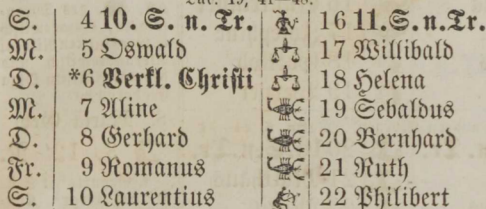 S. 4 10. S. n. Tr. 16 11. S. n. Tr.
M. 5 Oswald 17 Willibald
D. *6 Verkl. Christi 18 Helena
M. 7 Aline 19 Sebaldus
D. 8 Gerhard 20 Bernhard
Fr. 9 Romanus 21 Ruth
S. 10 Laurentius 22 Philibert